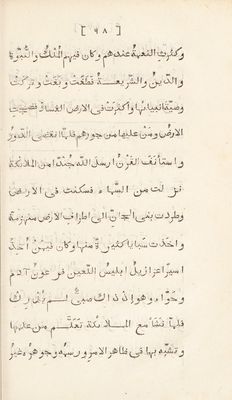 [ ٩٨ ]
وكثرت النعمة عندهم وكان فيهم الملك والنبوة
والدين والشريعة فطغت وبغت وتركت
وصية انبيائها واكثرت في الارض الفساد فضجت
الارض ومن عليها من جورهم فلما انقضى الدور
واستأنف القرن ارسل الله جندا من الملائكة
نزلت من السماء فسكنت في الارض
وطردت بني الجان الى اطراف الارض منهزمة
واخذت سبايا كثيرة منها وكان فيمن اخذ
اسيرا عزازيل ابليس اللعين فرعون آدم
وحواء وهو اذ ذاك صبي لم يدرك
فلما نشأ مع الملائكة تعلم من علمها
وتشبه بها في ظاهر الامر ورسمه وجوهره غير